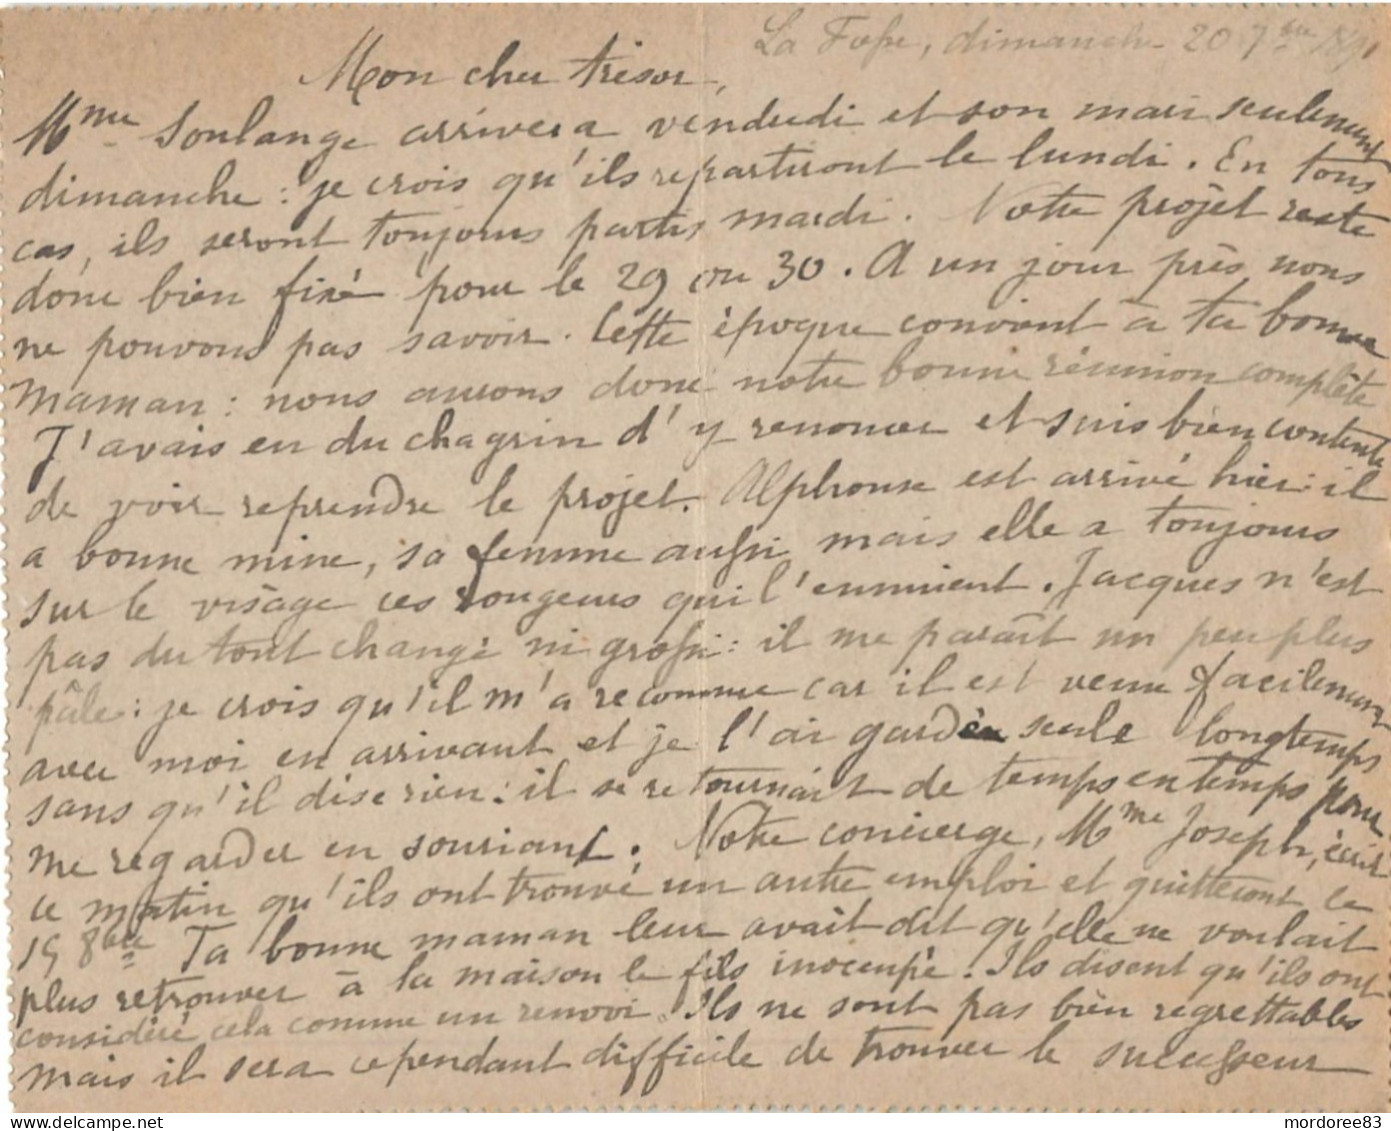 La Fosse, dimanche 20 7bre 1891
Mon cher trésor,
Mme Soulange arrivera vendredi et son mari seulement
dimanche : je crois qu'ils repartiront le lundi. En tous
cas, ils seront toujours partis mardi. Notre projet reste
donc bien fixé pour le 29 ou 30. A un jour près, nous
ne pouvons pas savoir. Cette époque convient à ta bonne
maman : nous aurons donc notre bonne réunion complète
J'avais eu du chagrin d'y renoncer et suis bien contente
de voir reprendre le projet. Alphonse est arrivé hier : il
a bonne mine, sa femme aussi, mais elle a toujours
sur le visage ces rougeurs qui l'ennuient. Jacques n'est
pas du tout changé ni grossi : il me paraît un peu plus
pâle : je crois qu'il m'a reconnue car il est venu facilement
avec moi en arrivant et je l'ai gardé seule longtemps
sans qu'il dise rien : il se retournait de temps en temps pour
me regarder en souriant. Notre concierge, Mme Joseph, écrit
ce matin qu'ils ont trouvé un autre emploi et quitteront le
15 8bre Ta bonne maman leur avait dit qu'elle ne voulait
plus retrouver à la maison le fils inoccupé. Ils disent qu'ils ont
considéré cela comme un renvoi. Ils ne sont pas bien regrettables
mais il sera cependant difficile de trouver le successeur
mordoree83